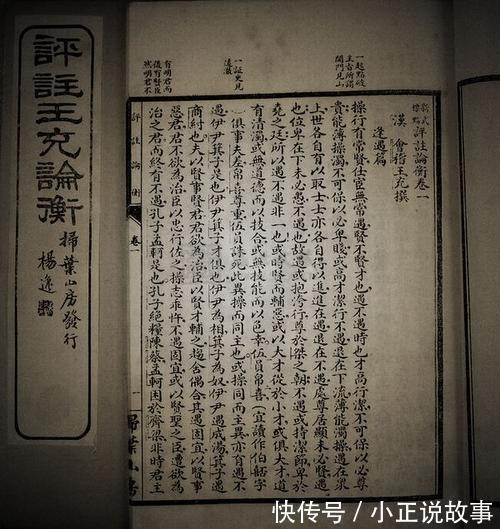 評註王充論衡
掃葉山房發行
楊逸
一起點破
主旨所謂
開門見山
一証史見
有明君而
後有賢臣
然明君不
新式標點
評註論衡卷一
漢 會稽王充撰
逢遇篇
操行有常賢仕宦無常遇賢不賢才也遇不遇時也才高行潔不可保以必尊
貴能薄操濁不可保以必卑賤或高才潔行不遇退在下流薄能濁操遇在衆
上世各自有以取士士亦各自得以進進在遇退在不遇處尊居顯未必賢遇
也位卑在下未必愚不遇也故遇或抱洿行尊於桀之朝不遇或持潔節卑於
堯之廷所以遇不遇非一也或時賢而輔惡或以大才從於小才或俱大才道
有清濁或無道德而以技合或無技能而以色幸伍員帛喜一宜讀作伯嚭字
俱事夫差帛喜尊重伍員誅死此異操而同主也或操同而主異亦有遇不
遇伊尹箕子是也伊尹箕子才俱也伊尹為相箕子為奴伊尹遇成湯箕子遇
商紂也夫以賢事賢君君欲為治臣以賢才輔之趨舍偶合其遇固宜以賢事
惡君君不欲為治臣以忠行佐之操志乖忤不遇固宜或以賢聖之臣遭欲為
治之君而終有不遇孔子孟軻是也孔子絕糧陳蔡孟軻困於齊梁非時君主
評註論衡
卷一
一
掃葉山房
快传号／小正说故事